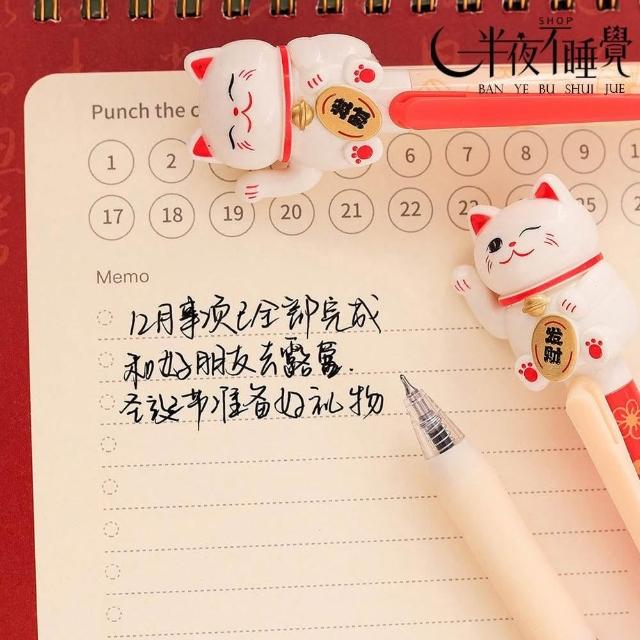 SHOP
半夜不睡覺
BAN YE BU SHUI JUE
Punch the
1 2 6 7 8 9
17 18 19 20 21 22 25
Memo
12月事项已全部完成
和好朋友去露营.
圣诞节准备好礼物
发财
发财